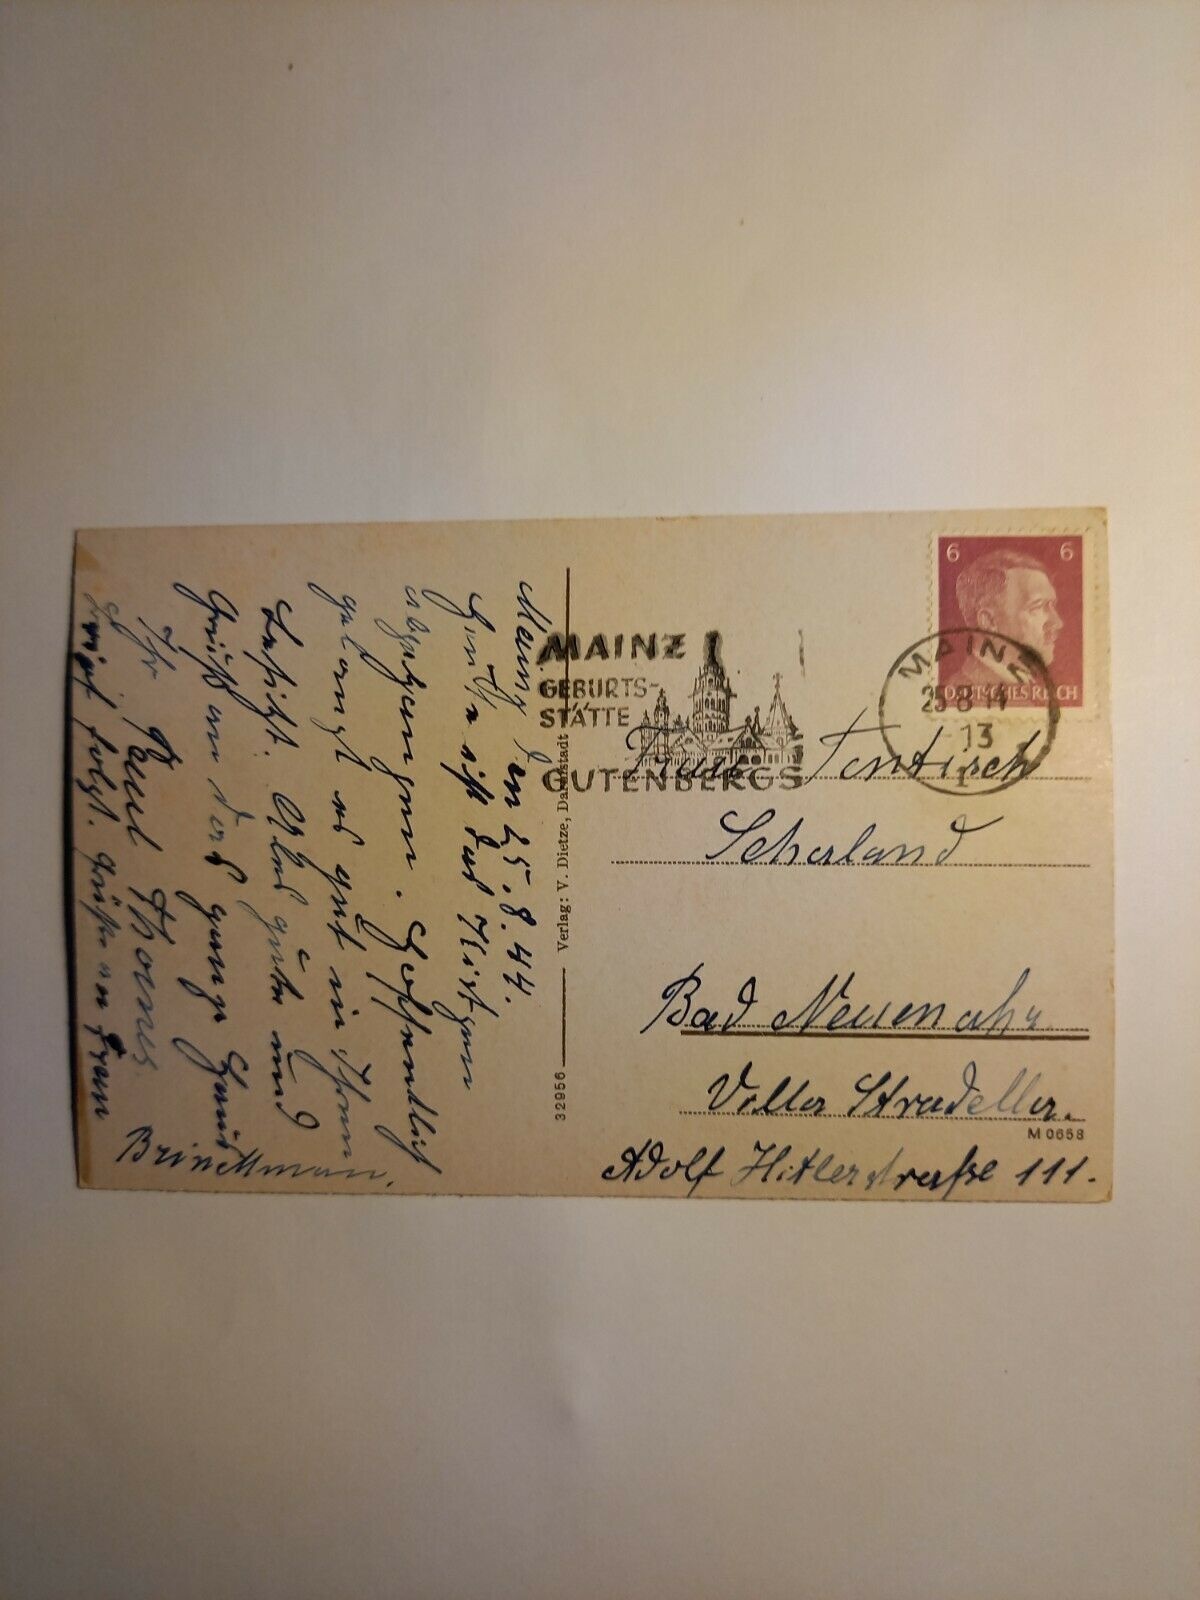 Mainz, den 25.8.44.
Heute ist das
abgegangen. Hoffentlich
gelangt es gut in Ihren
Besitz. Alles Gute und
Grüße an das ganze Haus
Ihr Paul Thomas
Brief folgt. Grüße an Frau
Brinckmann.
Verlag: V. Dietze, Darmstadt
32956
MAINZ
GEBURTS-
STÄTTE
GUTENBERGS
6 6
DEUTSCHES REICH
MAINZ
25 8 44
13
Frau Tentisch
Scherland
Bad Neuenahr
Villa Stradella.
M 0658
Adolf Hitlerstraße 111.